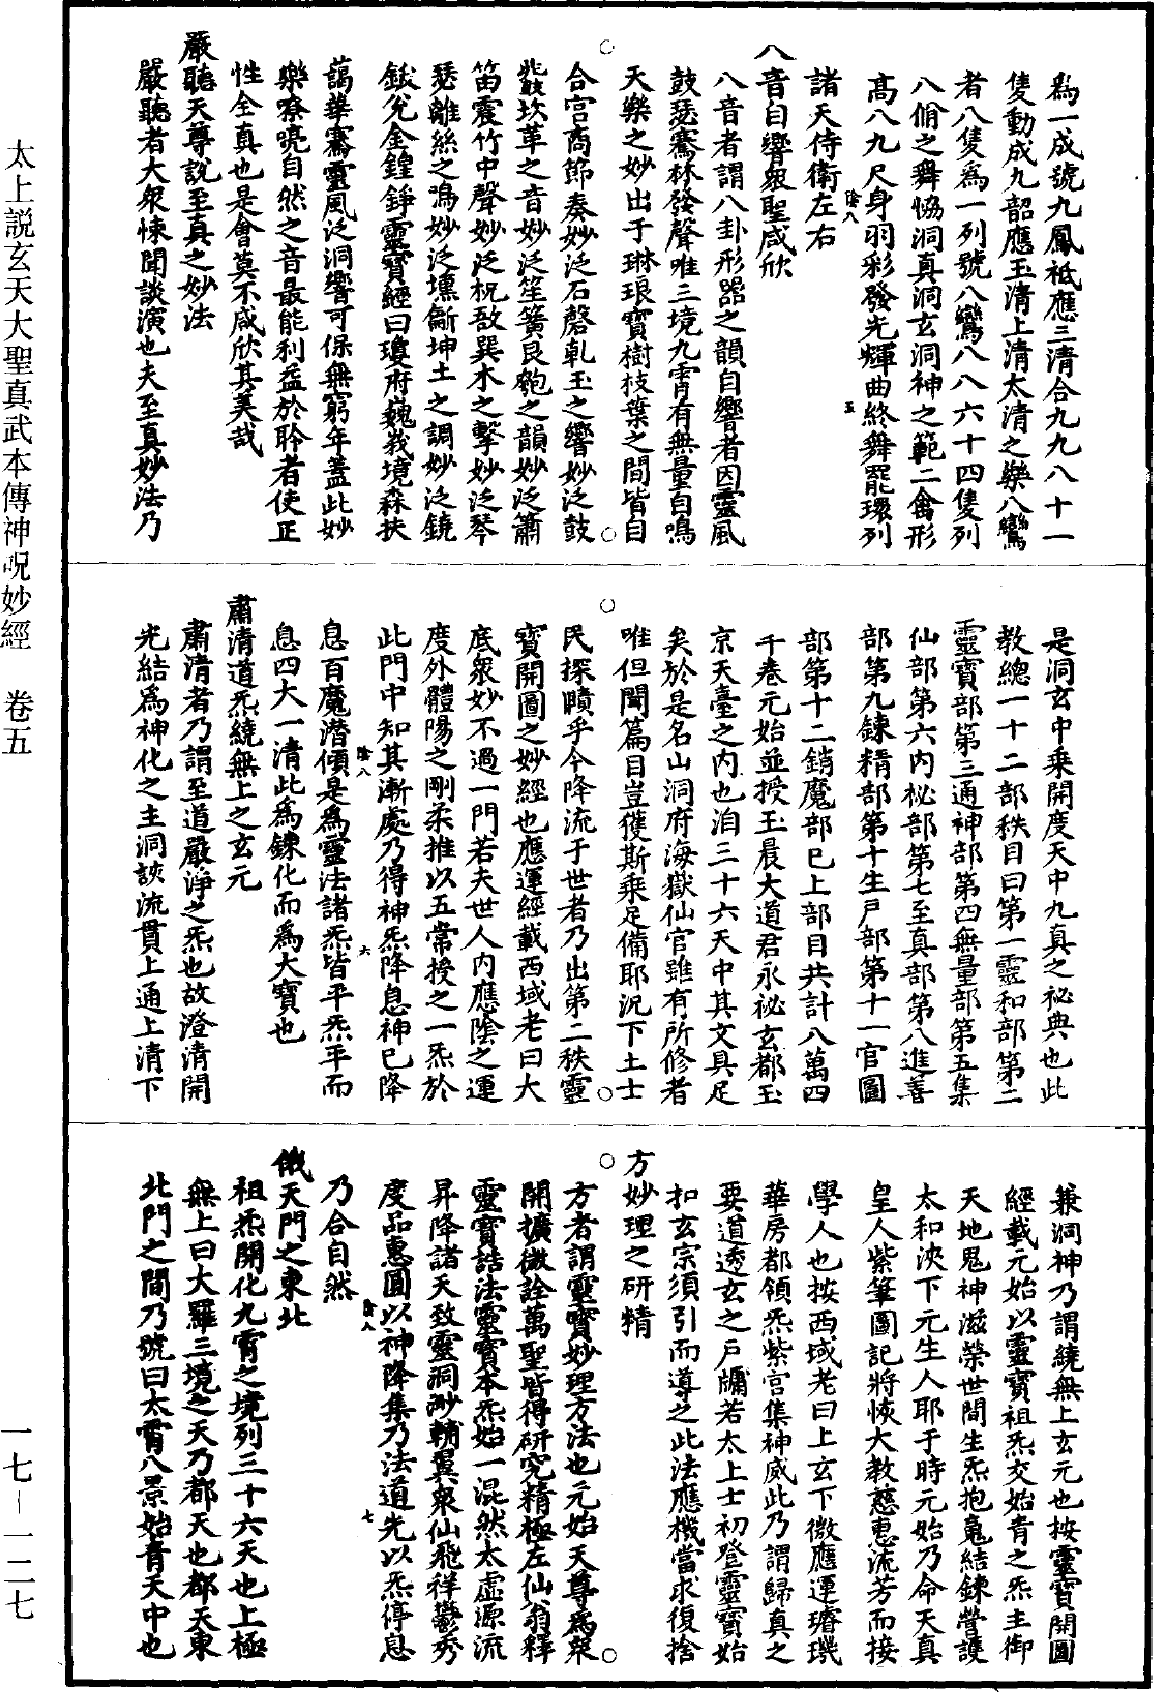 爲一成號九鳳祗應三清合九九八十一
隻動成九韶應玉清上清太清之樂八鸞
者八隻爲一列號八鸞八八六十四隻列
八佾之舞恊洞真洞玄洞神之範二禽形
髙八九尺身羽彩發光輝曲終舞罷環列
陰八 五
諸天侍衛左右
八音自響衆聖咸欣
八音者謂八卦形器之韻自響者因靈風
鼓瑟騫林發聲唯三境九霄有無量自鳴
天樂之妙出于琳琅寳樹枝葉之間皆自
合宫商節奏妙泛石磬乹玉之響妙泛鼓
鼗坎革之音妙泛笙簧艮匏之韻妙泛簫
笛震竹中聲妙泛柷敔巽木之擊妙泛琴
瑟離絲之鳴妙泛壎斸坤土之調妙泛鐃
鈸兊金鍠錚靈寳經曰瓊府巍峩境森扶
藹華騫靈風泛洞響可保無窮年蓋此妙
樂嘹喨自然之音最能利益於聆者使正
性全真也是會莫不咸欣其美哉
嚴聽天尊説至真之妙法
嚴聽者大衆悚聞談演也夫至真妙法乃
是洞玄中乘開度天中九真之祕典也此
教總一十二部秩目曰第一靈和部第二
靈寳部第三通神部第四無量部第五集
仙部第六内祕部第七至真部第八進善
部第九鍊精部第十生戸部第十一官圖
部第十二銷魔部已上部目共計八萬四
千卷元始並授玉晨大道君永祕玄都玉
京天臺之内也洎三十六天中其文具足
矣於是名山洞府海嶽仙官雖有所修者
唯但聞篇目豈獲斯乘足備耶況下土士
民探賾乎今降流于世者乃出第二秩靈
寳開圖之妙經也應運經載西域老曰大
底衆妙不過一門若夫世人内應陰之運
度外體陽之剛柔推以五常授之一炁於
此門中知其漸處乃得神炁降息神已降
陰八 六
息百魔潛傾是爲靈法諸炁皆平炁平而
息四大一清此爲鍊化而爲大寳也
肅清道炁繞無上之玄元
肅清者乃謂至道嚴淨之炁也故澄清開
光結爲神化之主洞詼流貫上通上清下
兼洞神乃謂繞無上玄元也按靈寳開圖
經載元始以靈寳祖炁交始青之炁主御
天地鬼神滋榮世間生炁抱䰟結鍊營護
太和泱下元生人耶于時元始乃命天真
皇人紫筆圖記將恢大教慈惠流芳而接
學人也按西域老曰上玄下微應運璿璣
華房都領炁紫宫集神威此乃謂歸真之
要道透玄之戸牖若太上士初登靈寳始
扣玄宗須引而導之此法應機當求復捨
方妙理之研精
方者謂靈寳妙理方法也元始天尊爲衆
開擴微詮萬聖皆得研究精極左仙翁釋
靈寳誥法靈寳本炁始一混然太虚源流
昇降諸天致靈洞渺輔翼衆仙飛祥鬱秀
度品惠圓以神降集乃法道先以炁停息
陰八 七
乃合自然
俄天門之東北
祖炁開化九霄之境列三十六天也上極
無上曰大羅三境之天乃都天也都天東
北門之間乃號曰太霄八景始青天中也
太上説玄天大聖真武本傳神呪妙經 卷五
一七－一二七